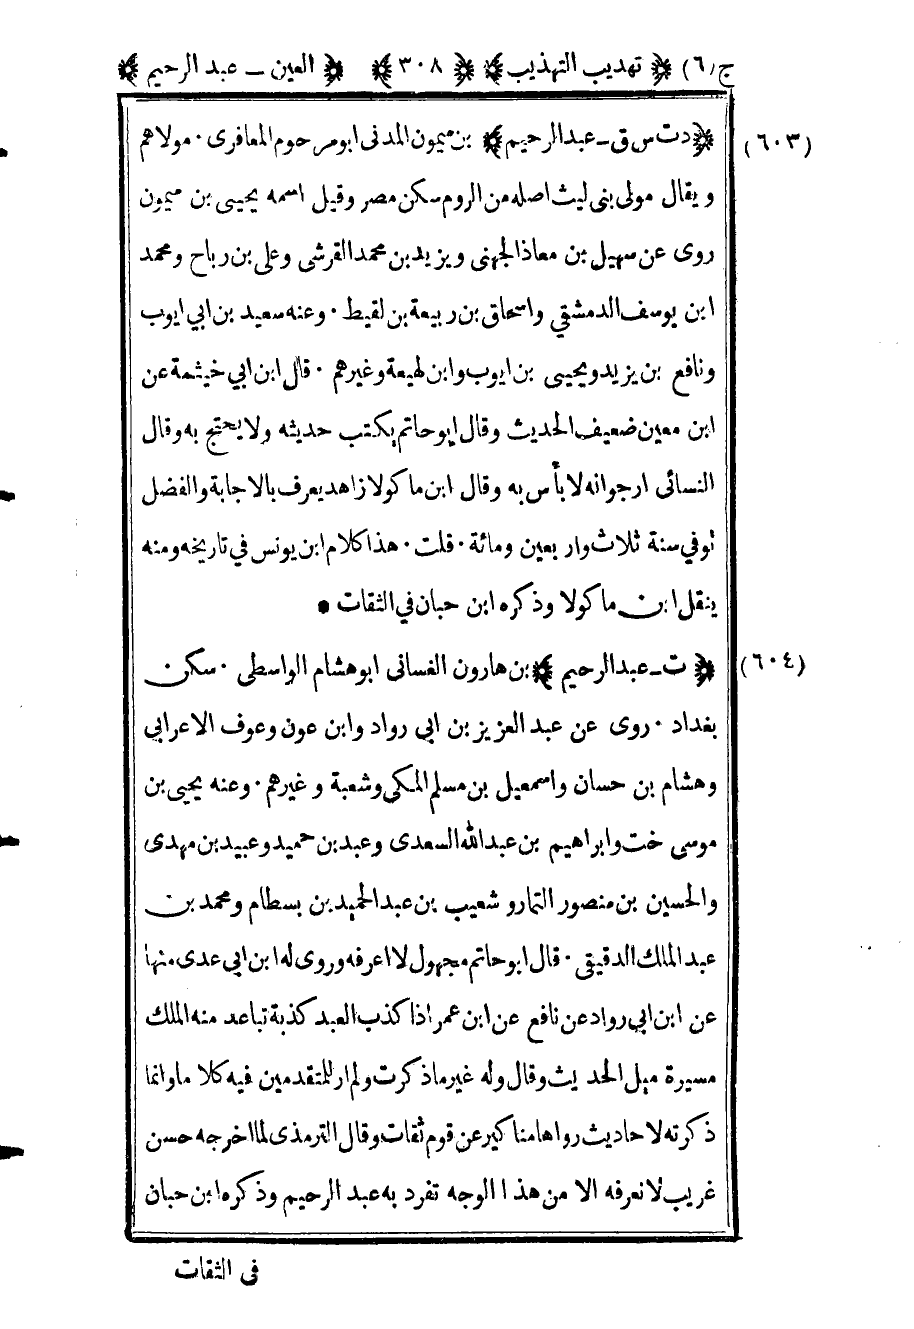 ج (٦) ﴿ تهذيب التهذيب ﴾ ﴿ ٣٠٨ ﴾ ﴿ العين ـ عبد الرحيم ﴾
(٦٠٣) ﴿ د ت س ق ـ عبد الرحيم ﴾ بن ميمون المدنى ابو مرحوم المعافرى ٠ مولاهم
ويقال مولى بنى ليث اصله من الروم سكن مصر وقيل اسمه يحيى بن ميمون
روى عن سهيل بن معاذ الجهنى ويزيد بن محمد القرشى وعلى بن رباح ومحمد
ابن يوسف الدمشقي واسحاق بن ربيعة بن لقيط ٠ وعنه سعيد بن ابي ايوب
ونافع بن يزيد ويحيى بن ايوب وابن لهيعة وغيرهم ٠ قال ابن ابي خيثمة عن
ابن معين ضعيف الحديث وقال ابو حاتم يكتب حديثه ولا يحتج به وقال
النسائى ارجو انه لا بأس به وقال ابن ماكولا زاهد يعرف بالاجابة والفضل
توفي سنة ثلاث واربعين ومائة ٠ قلت ٠ هذا كلام ابن يونس في تاريخه ومنه
ينقل ابن ماكولا وذكره ابن حبان في الثقات ●
(٦٠٤) ﴿ ت ـ عبد الرحيم ﴾ بن هارون الغسانى ابو هشام الواسطى ٠ سكن
بغداد ٠ روى عن عبد العزيز بن ابي رواد وابن عون وعوف الاعرابي
وهشام بن حسان واسمعيل بن مسلم المكي وشعبة وغيرهم ٠ وعنه يحيى بن
موسى خت وابراهيم بن عبد الله السعدى وعبد بن حميد وعبيد بن مهدى
والحسين بن منصور التمار وشعيب بن عبد الحميد بن بسطام ومحمد بن
عبد الملك الدقيقي ٠ قال ابو حاتم مجهول لا اعرفه وروى له ابن ابي عدى منها
عن ابن ابي رواد عن نافع عن ابن عمر اذا كذب العبد كذبة تباعد منه الملك
مسيرة ميل الحديث وقال وله غير ما ذكرت ولم ار للمتقدمين فيه كلاما وانما
ذكرته لاحاديث رواها مناكير عن قوم ثقات وقال الترمذى لما اخرجه حسن
غريب لا نعرفه الا من هذا الوجه تفرد به عبد الرحيم وذكره ابن حبان
في الثقات